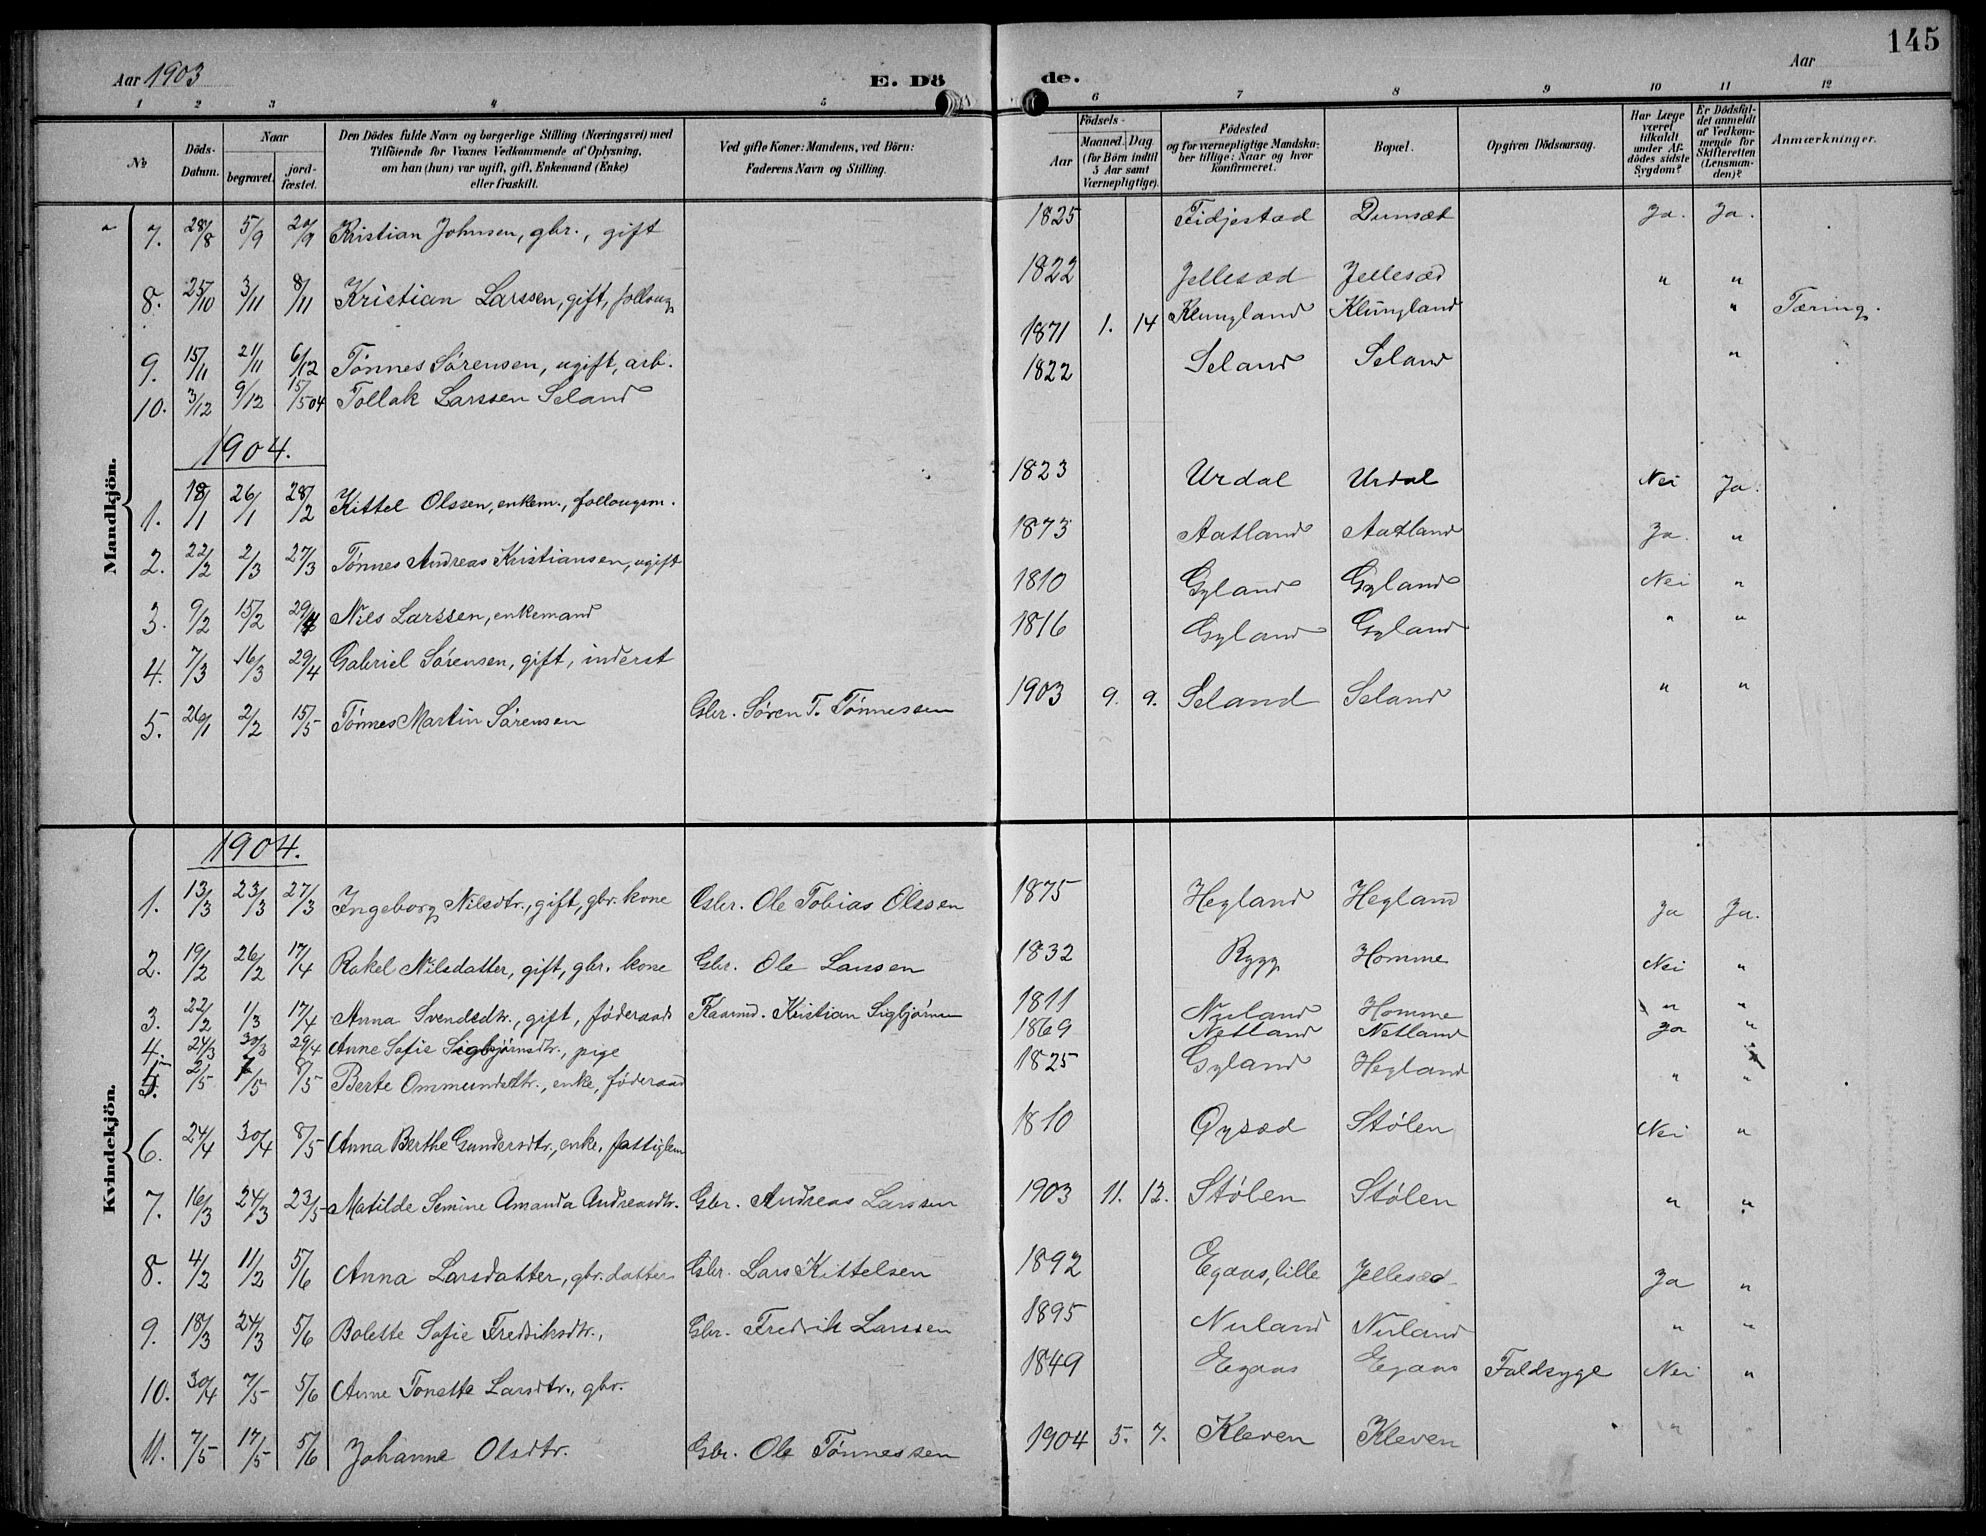 145
Aar 1903
E. Dö
de.
Aar
1 2 3 4 5 6 7 8 9 10 11 12
No
Döds-Datum.
Naar
begravet.
jord-fæstet.
Den Dödes fulde Navn og borgerlige Stilling (Næringsvei) med
Tilföiende for Voxnes Vedkommende af Oplysning,
om han (hun) var ugift, gift, Enkemand (Enke)
eller fraskilt.
Ved gifte Koner: Mandens, ved Börn:
Faderens Navn og Stilling.
Födsels-
Aar
Maaned. Dag.
(for Börn indtil
5 Aar samt
Værnepligtige).
Födested
og for værnepligtige Mandska-
ber tillige: Naar og hvor
konfirmeret.
Bopæl.
Opgiven Dödsaarsag.
Har Læge
været
tilkaldt
under Af-
dödes sidste
Sygdom?
Er Dödsfal-
det anmeldt
af Vedkom-
mende for
Skifteretten
(Lensman-
den)?
Anmærkninger.
Mandkjön.
7. 28/8 5/9 20/9 Kristian Johnsen, gbr., gift 1825 Fidjestad Dunsæd Ja. Ja.
8. 25/10 3/11 8/11 Kristian Larssen, gift, follougs 1822 Jellesæd Jellesæd " "
9. 15/11 21/11 6/12 Tønnes Sørensen, ugift, arb. 1871 1. 14 Klungland Klungland " Tæring.
10. 3/12 9/12 15/5 04 Tollak Larssen Seland 1822 Seland Seland "
1904.
1. 18/1 26/1 28/2 Kittel Olssen, enkem., follougsm. 1823 Urdal Urdal Nei Ja.
2. 22/2 2/3 27/3 Tønnes Andreas Kristiansen, ugift 1873 Aatland Aatland Ja. "
3. 9/2 15/2 29/4 Nils Larssen, enkemand 1810 Gyland Gyland Nei "
4. 7/3 16/3 29/4 Gabriel Sørensen, gift, inderst 1816 Gyland Gyland " "
5. 26/1 2/2 15/5 Tønnes Martin Sørensen Gbr. Søren T. Tønnessen 1903 9. 9. Seland Seland " "
Kvindekjön.
1904.
1. 13/3 23/3 27/3 Ingeborg Nilsdtr., gift, gbr. kone Gbr. Ole Tobias Olssen 1875 Hegland Hegland Ja Ja.
2. 19/2 26/2 17/4 Rakel Nilsdatter, gift, gbr. kone Gbr. Ole Larssen 1832 Rygg Homme Nei "
3. 22/2 1/3 17/4 Anna Svendsdtr., gift, føderaad Kaarmd. Kristian Sigbjørnsen 1811 Nuland Homme " "
4. 24/3 30/3 29/4 Anne Sofie Sigbjørnsdtr., pige 1869 Netland Netland Ja "
5. 2/5 7/5 8/5 Berte Ommundsdtr., enke, føderaad 1825 Gyland Hegland " "
6. 24/4 30/4 8/5 Anna Berthe Gundersdtr., enke, fattiglem 1810 Øysæd Stølen Nei "
7. 16/3 24/3 23/5 Matilde Semine Amanda Andreasdtr. Gbr. Andreas Larssen 1903 11. 12. Stølen Stølen " "
8. 4/2 11/2 5/6 Anna Larsdatter, gbr. datter Gbr. Lars Kittelsen 1892 Egaas, lille Jellesæd Ja "
9. 18/3 24/3 5/6 Bolette Sofie Fredriksdtr., Gbr. Fredrik Larssen 1895 Nuland Nuland " "
10. 30/4 7/5 5/6 Anne Tonette Larsdtr., gbr. 1849 Egaas Egaas Faldsyge Nei "
11. 7/5 17/5 5/6 Johanne Olsdtr. Gbr. Ole Tønnessen 1904 5. 7. Kleven Kleven "